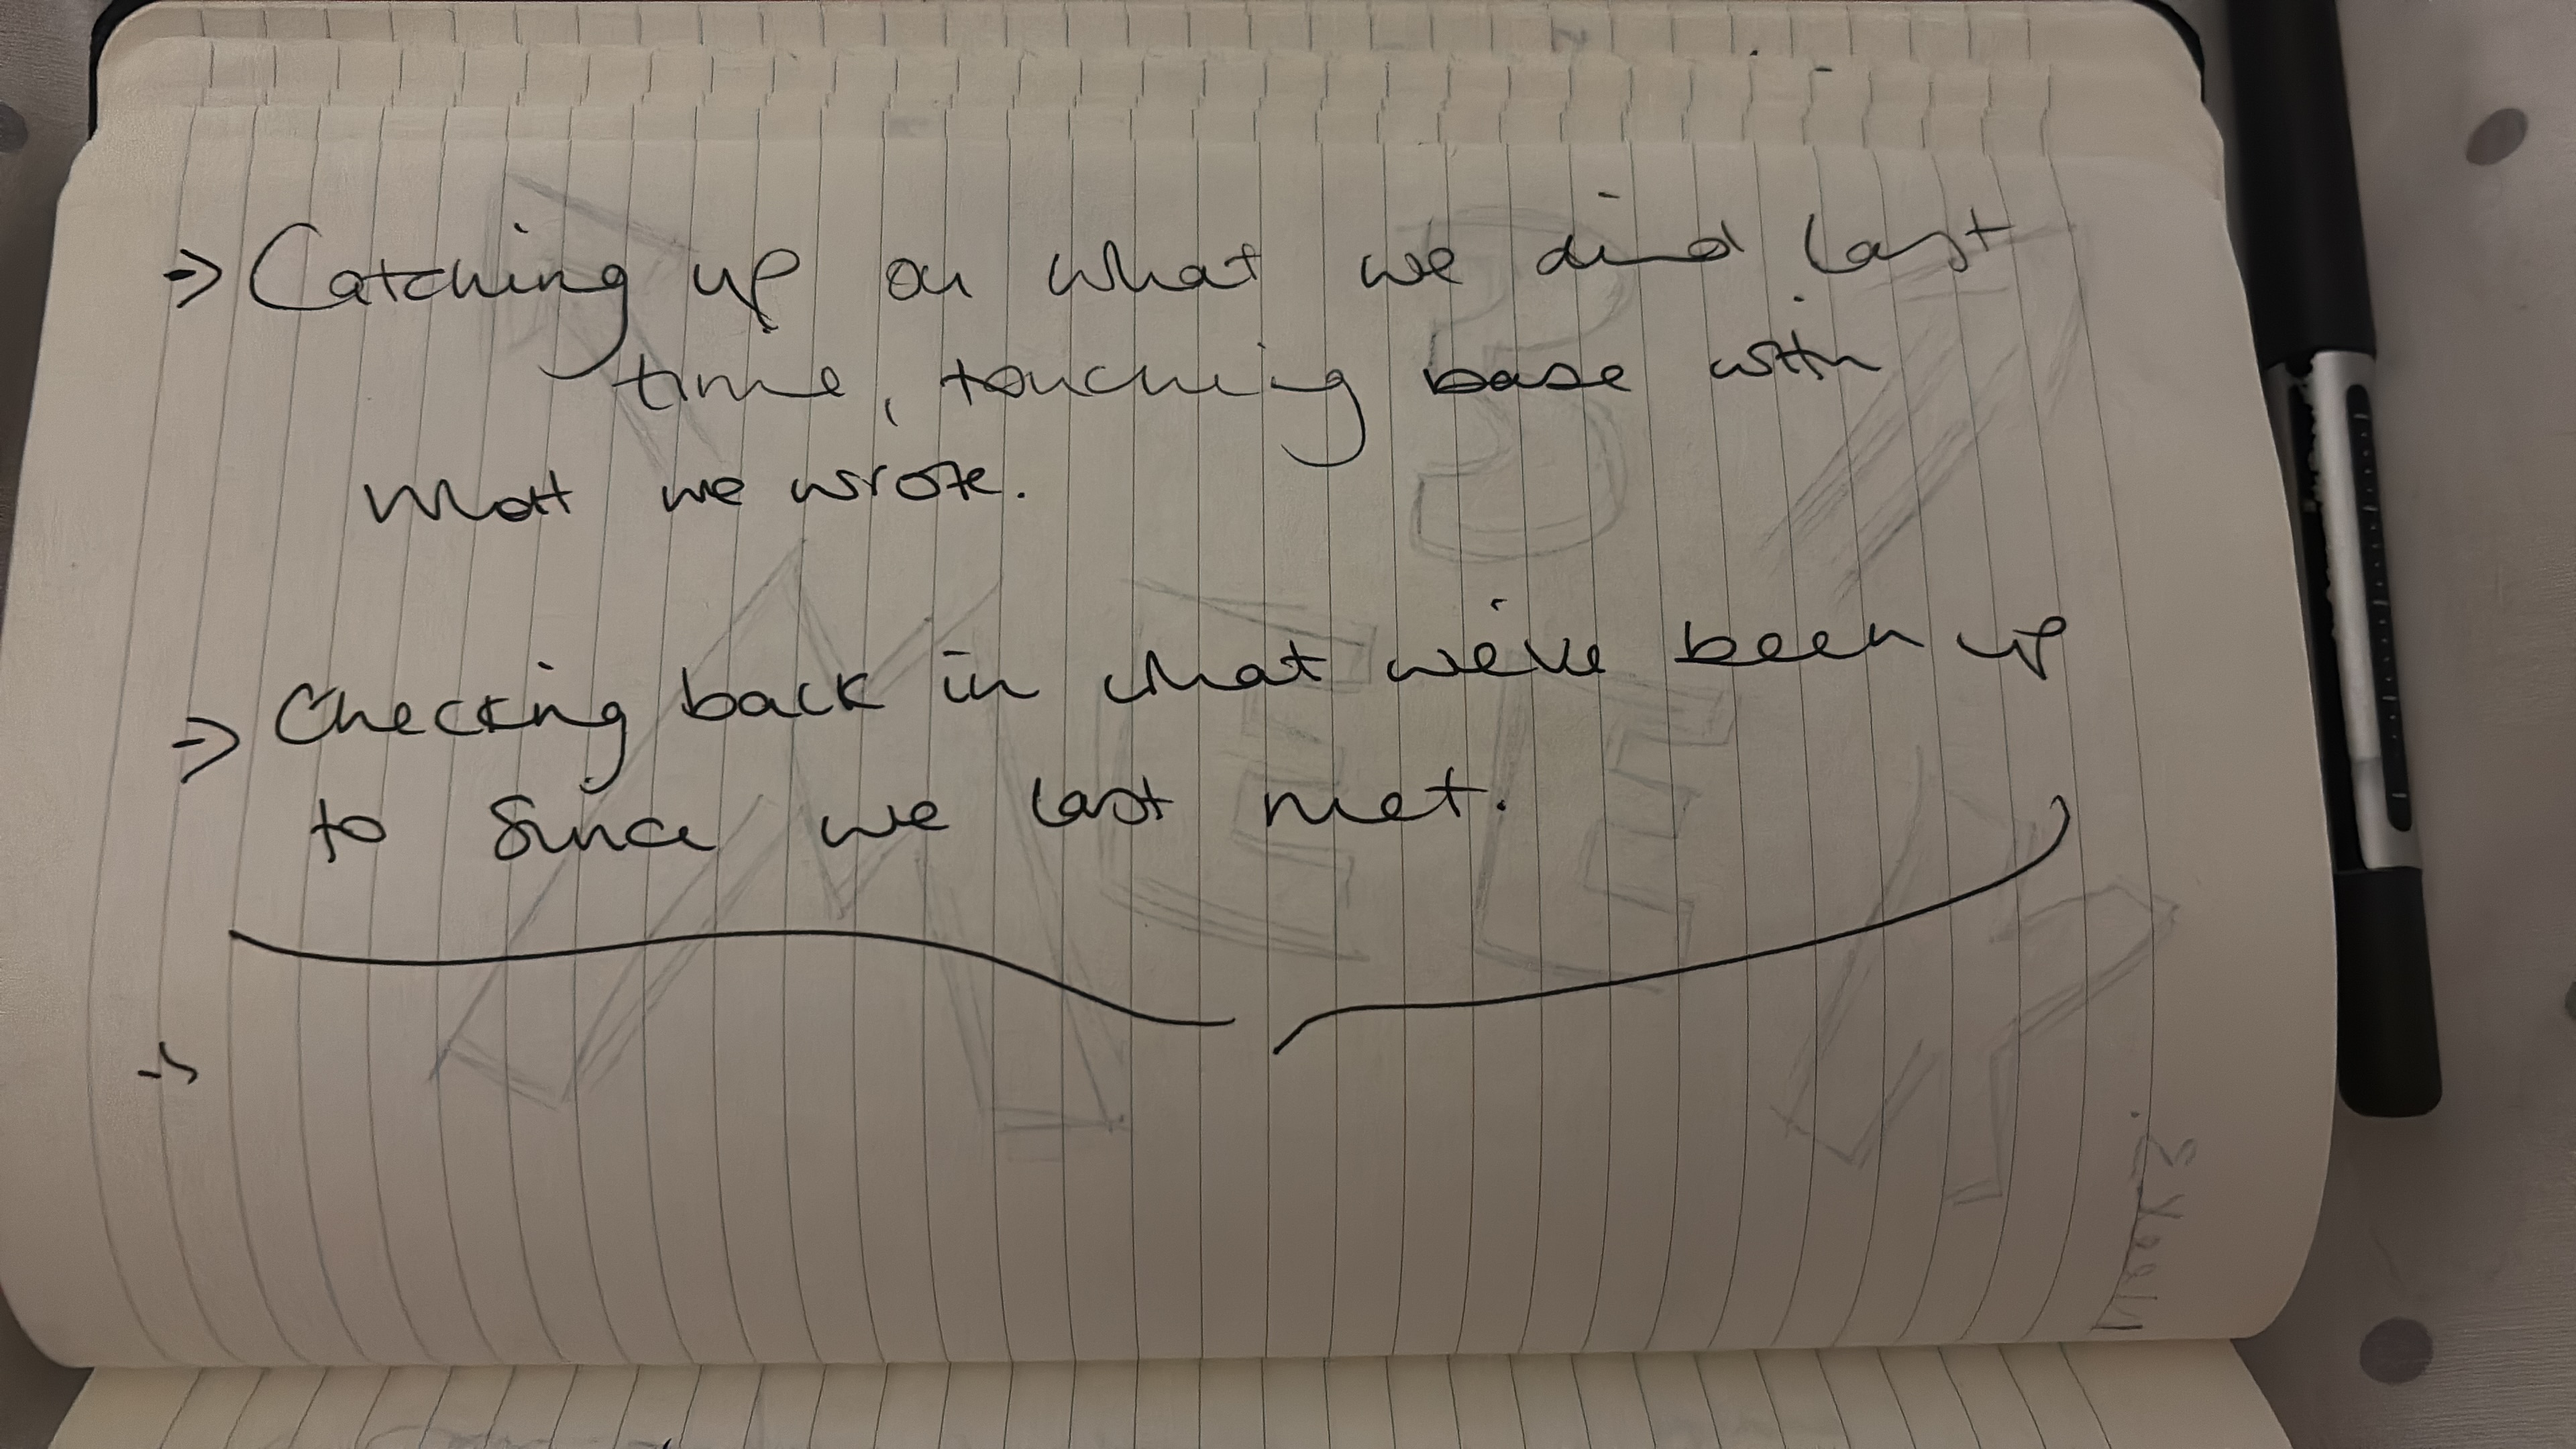 => Catching up on what we dind last
time, touching base with
what we wrote.
=> Checking back in what we've been up
to since we last met.
WEEK 3